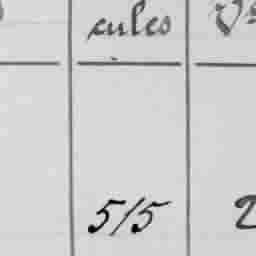 cules
5/5 2